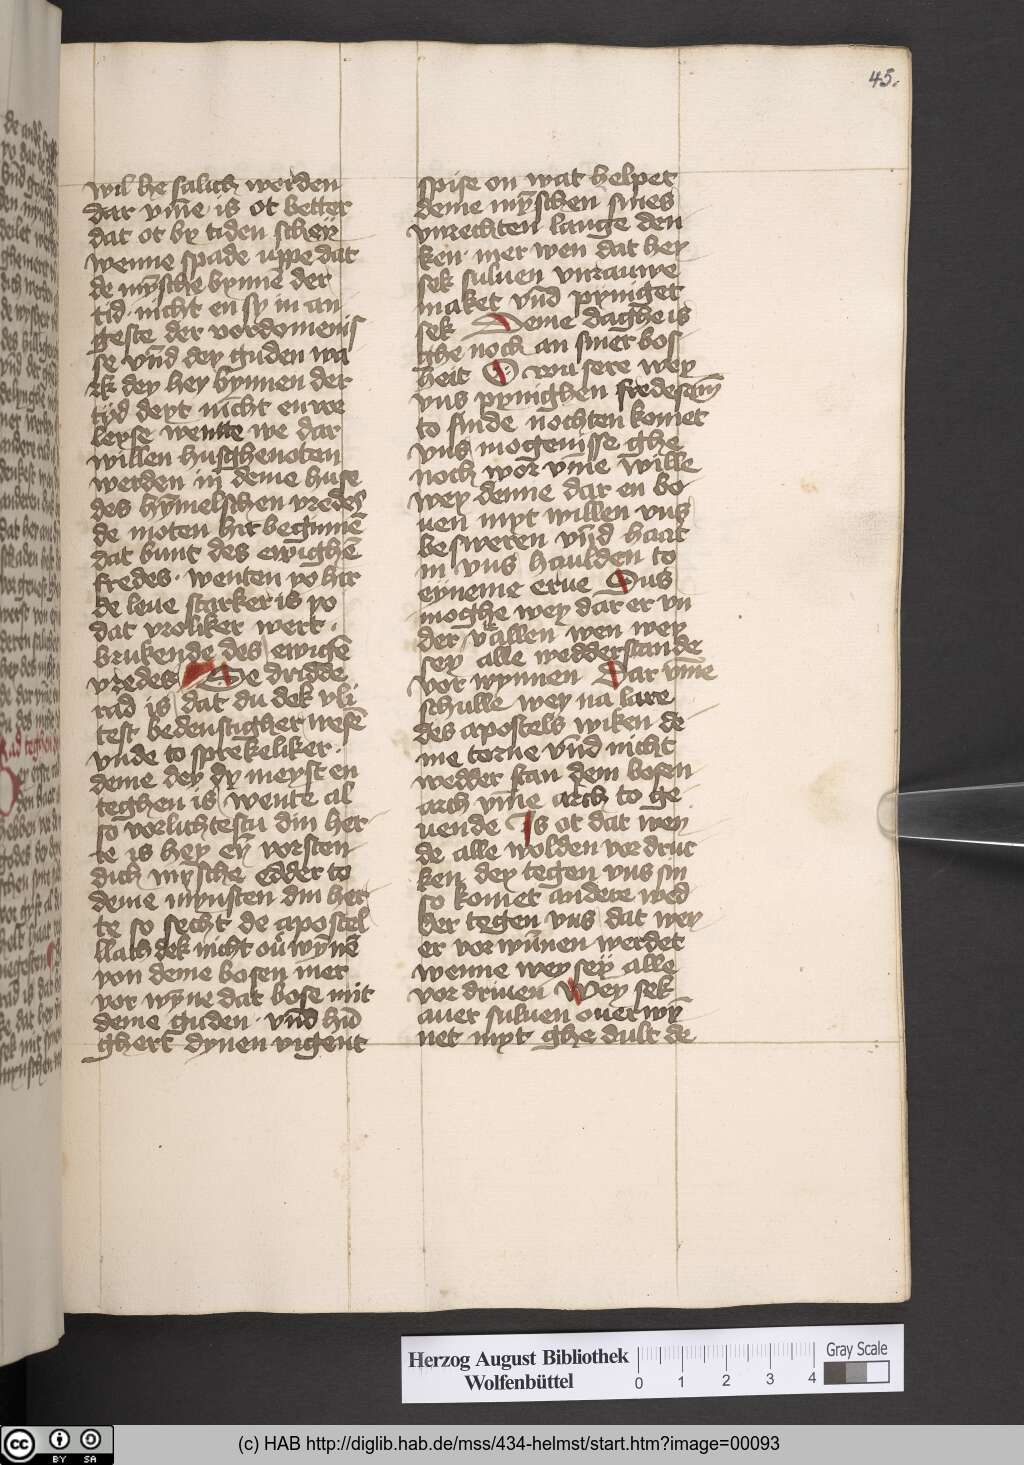 45.
wil he salich werden
dar vm̄e is ot better
dat ot by tiden schey
wenne spade uppe dat
de mȳsche bynne der
tid nicht en sy in an
geste der vordomenis
se vn̄d dey guden wa
rk dey hey bynnen der
tyd deyt nicht en vor
leyse wentte we dar
willen husghenoten
werden in deme huse
des hȳmelschen vredes
de moten hir beginnē
dat bunt des ewighē
fredes. wenten yo hir
de leue starker is yo
dat vroliker wert.
brukende des ewigē
vredes De dridde
rad is dat du dek vli
test bedenstigher wesē
vnde to sprekeliker.
deme dey dy meyst en
teghen is wente al
so vorlichtestu din her
te is hey eȳ vorsten
dich mȳsche Edder to
deme mynsten din her
te so secht de apostel
llath dek nicht ou wȳnē
von deme bosen mer
vor wȳne dat bose mit
deme guden. vn̄d hū
ghert dynen vigent
spise on wat helpet
deme mȳschen sines
vnrechten lange den
ken mer wen dat hey
sek suluen vnrauwe
maket vn̄d pyniget
sek Deme daghe is
ghe noch an siner bos
heit O wu sere wey
vns pynighen fredesam
to sinde nochten komet
vns mogenisse ghe
noch wor vm̄e wille
wey denne dar en bo
uen myt willen vns
besweren vn̄d haat
in vns haulden to
eyneme erue Sus
moghe wey dar er vn
der vallen wen wey
sey alle wedderstande
vor wynnen Dar vm̄e
schulle wey na lare
des apostels wiken de
me torne vn̄d nicht
wedder stan dem bosen
arch vm̄e arch to ge
uende Is ot dat wey
de alle wolden vor druc
ken dey tegen vns sin
so komet andere wed
der tegen vns dat wey
er vor wūnen werdet
wenne wey seȳ alle
vor driuen Wey sek
auer suluen ouer wȳ
net myt ghe dult de
Herzog August Bibliothek
Wolfenbüttel
0 1 2 3 4
Gray Scale
cc BY SA
(c) HAB http://diglib.hab.de/mss/434-helmst/start.htm?image=00093